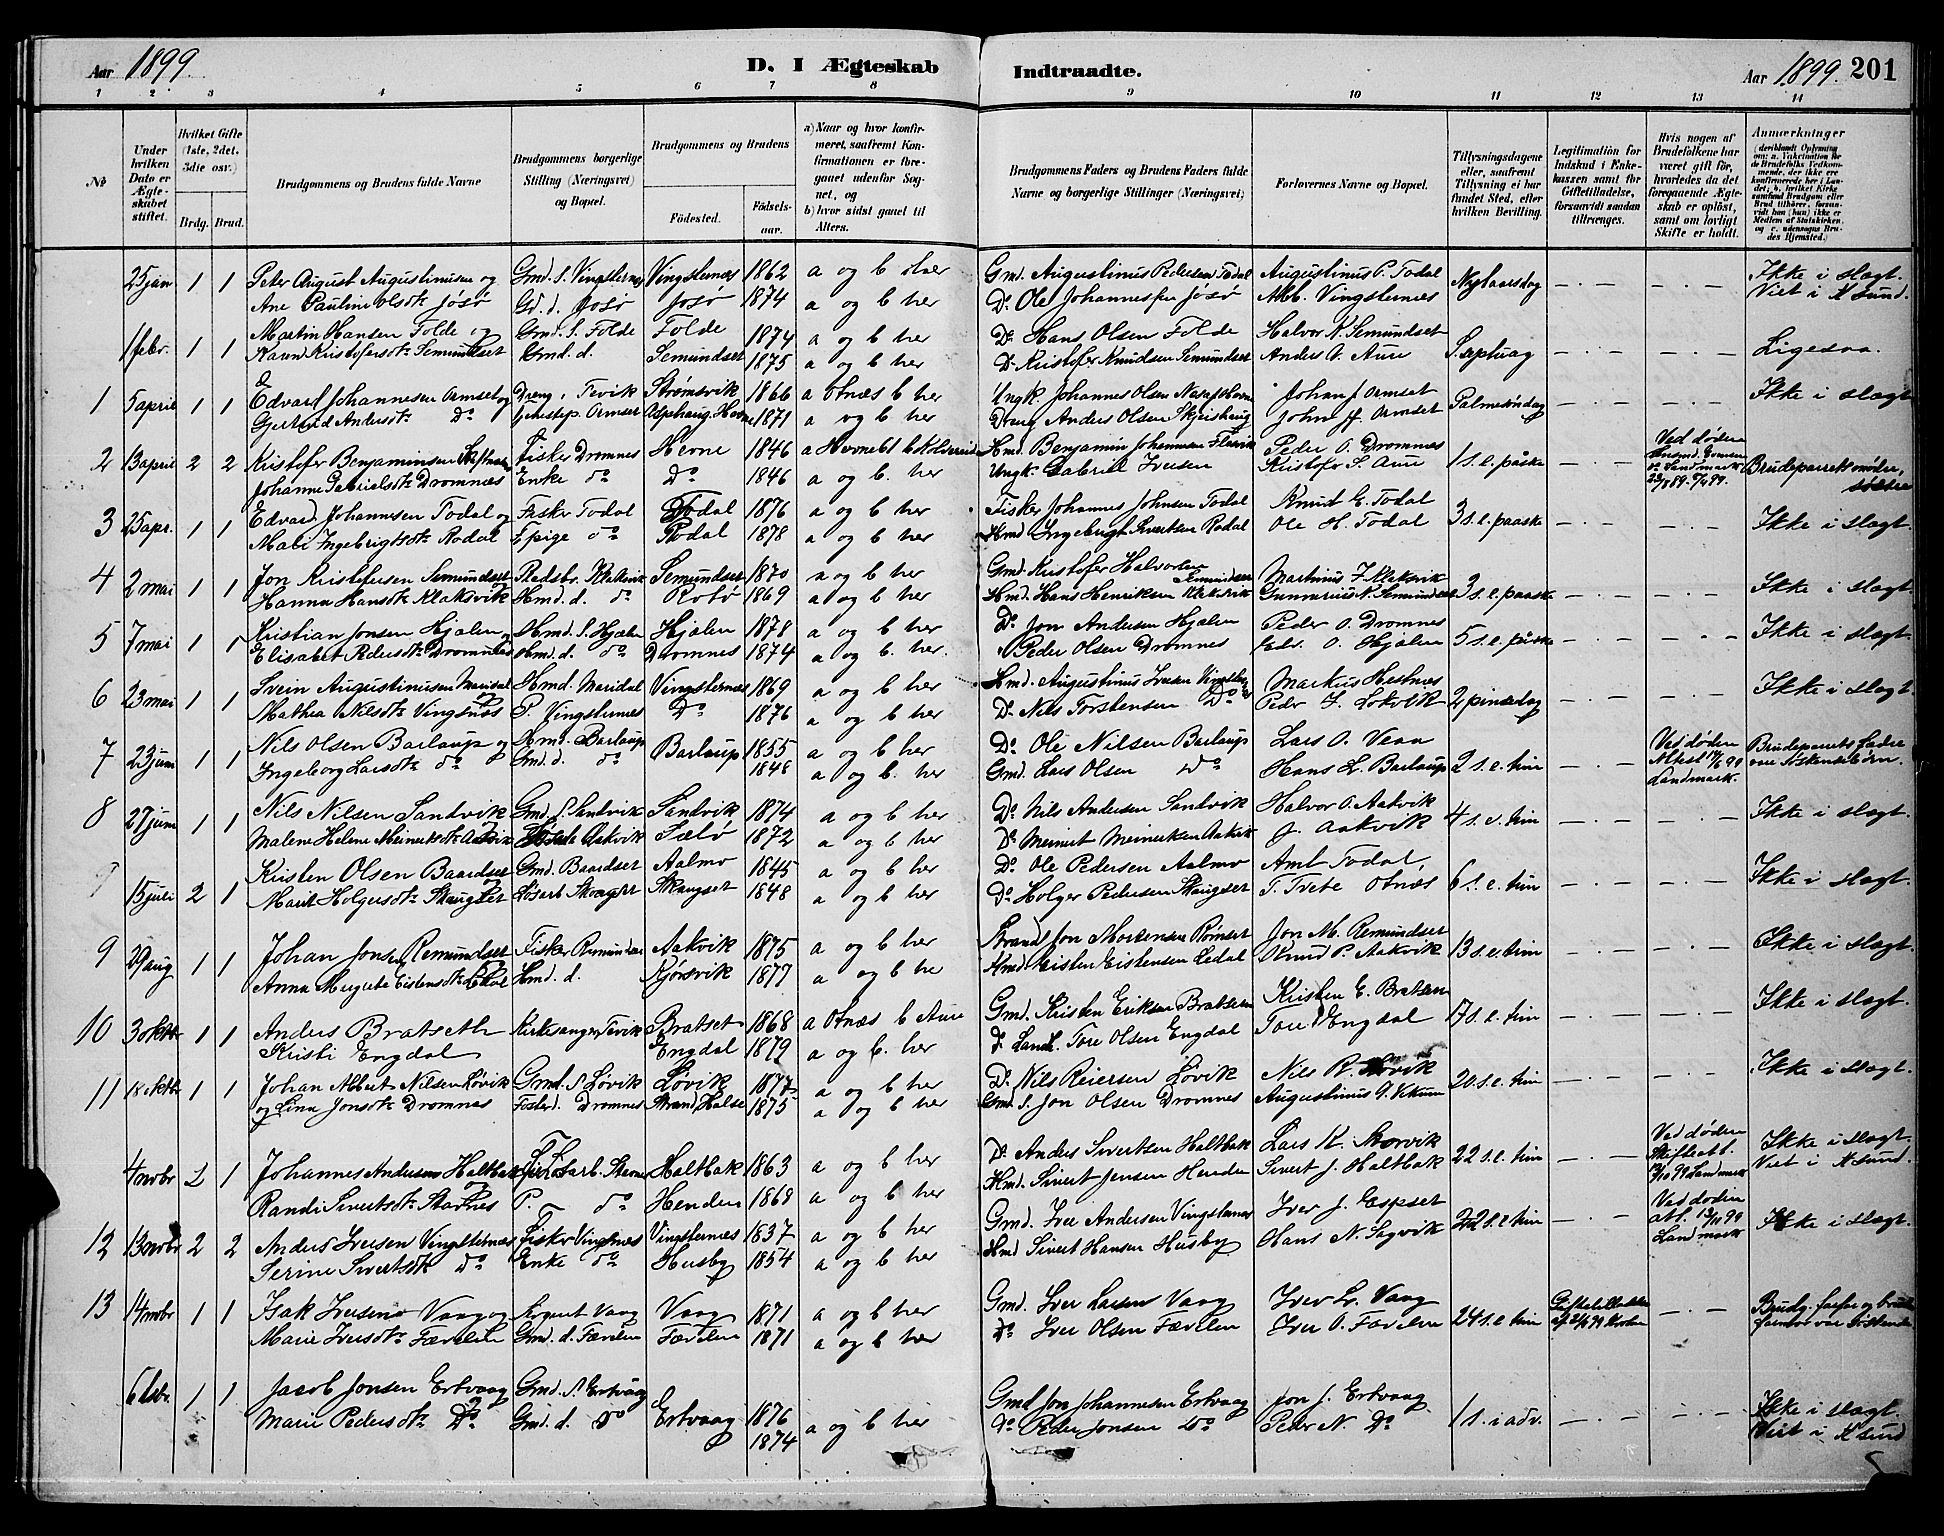 Aar 1899. D. I Ægteskab Indtraadte. Aar 1899. 201
1 2 3 4 5 6 7 8 9 10 11 12 13 14
No
Under hvilken Dato er Ægteskabet stiftet.
Hvilket Gifte (1ste, 2det, 3die osv.)
Brdg. Brud.
Brudgommens og Brudens fulde Navne
Brudgommens borgerlige Stilling (Næringsvei) og Bopæl.
Brudgommens og Brudens
Fødested. Fødselsaar.
a) Naar og hvor konfirmeret, saafremt Konfirmationen er foregaaet udenfor Sognet, og
b) hvor sidst gaaet til Alters.
Brudgommens Faders og Brudens Faders fulde Navne og borgerlige Stillinger (Næringsvei)
Forlovernes Navne og Bopæl.
Tillysningsdagene eller, saafremt Tillysning ei har fundet Sted, efter hvilken Bevilling.
Legitimation for Indskud i Enkekassen samt for Giftetilladelse, forsaavidt saadan tiltrænges.
Hvis nogen af Brudefolkene har været gift før, hvorledes da det foregaaende Ægteskab er opløst, samt om lovligt Skifte er holdt.
Anmærkninger (deriblandt Oplysning om: a. Vakcination for de Brudefolks Vedkommende, der ikke ere konfirmerede her i Landet; b. hvilket Kirkesamfund Brudgom eller Brud tilhører, forsaavidt han (hun) ikke er Medlem af Statskirken, og c. udensogns Brudes Hjemsted.)
25 jan 1 1 Peter August Augustinusen og Gmd. S. Vingsternes Vingsternes 1862 a og b her Gmd. Augustinus Pedersen Todal Augustinus P. Todal Nytaarsdag — · — — · — Ikke i slagt.
Ane Pauline Olsdtr Jøsø Gd. d. Jøsø Jøsø 1874 a og b her Do Ole Johannesen Jøsø Alb. Vingsternes Viet i Ksund.
1 febr. 1 1 Martin Hansen Folde og Gmd. S. Folde Folde 1874 a og b her Do Hans Olsen Folde Halvor K. Semundset S. septuag — · — — · — Ligesaa.
Karen Kristofersdtr Semundset Gmd. d. Semundset 1875 a og b her Do Kristofer Knudsen Semundset Anders O. Aure
1 5 april 1 1 Edvard Johannesen Ormset og Dreng, Tevik Strømsvik 1866 a Otnæs b her Ungk. Johannes Olsen Johan J. Ormset Palmesøndag — · — — · — Ikke i slagt
Gjertrud Andersdtr Do Ormset Hevne 1871 a og b her Dreng Anders Olsen Skjeishaug John J. Ormset
2 13 april 2 2 Kristofer Benjaminsen Fisker Dromnes Hevne 1846 a Hevne b Hmd. Benjamin Johannesen Peder O. Dromnes 1 s. e. påske — · — Ved døden Brudeparrets mødre, søstre
Johanne Gabrielsdtr Dromnæs Enke do Do 1846 a og b. her Ungk. Gabriel Iversen Kristofer S. Aure
3 25 apr. 1 1 Edvard Johannesen Todal og Fisker Todal Todal 1876 a og b her Fisker Johannes Johnsen Todal Knud E. Todal 3 s. e. paaske — · — — · — Ikke i slagt
Mali Ingebrigtsdtr Rodal Tpige do Rodal 1878 a og b her Hmd Ingebrigt Sivertsen Rodal Ole H. Todal
4 2 mai 1 1 Jon Kristofersen Semundset Pladsbr. Klaksvik Semundset 1870 a og b her Gmd. Kristofer Halvorsen Semundset Martinus J. Klaksvik 3 s. e. paaske — · — — · — Ikke i slagt
Hanna Hansdtr Klaksvik Hmd. d. do Rotø 1869 a og b her Hmd. Hans Henriksen Klaksvik Gunnarius N. Semundset
5 7 mai 1 1 Kristian Jonsen Hjælen og Hmd. S. Hjælen Hjælen 1878 a og b her Do Jon Andersen Hjælen Peder O. Dromnes 5 s. e. påske — · — — · — Ikke i slagt
Elisabet Pedersdtr Dromnæs Hmd. d. do Dromnes 1874 a og b. her. Peder Olsen Dromnes Pedr. O. Hjælen
6 23 mai 1 1 Svein Augustinusen Maridal Hmd. Maridal Vingsternes 1869 a og b her Hmd. Augustinus Iversen Markus Hestnes 2 pinsedag — · — — · — Ikke i slagt
Mathea Nilsdtr Vingsnæs P. Vingsternes Do 1876 a og b her Do Nils Torstensen Do Peder J. Lokvik
7 23 juni 1 1 Nils Olsen Barlaup og Hmd. Barlaup Barlaup 1855 a og b her Do Ole Nilsen Barlaup Lars O. Vean 2 s. e. trin — · — Ved døden Brudeparrets fædre
Ingeborg Larsdtr do Gmd. d. do 1848 a og b. her Gmd. Lars Olsen do Hans L. Barlaup Landmark. vare søskenebørn.
8 27 juni 1 1 Nils Nilsen Sandvik Gmd. S. Sandvik Sandvik 1874 a og b her Do Nils Andersen Sandvik Halvor O. Aakvik 4 s. e. trin — · — — · — Ikke i slagt
Malene Helene Meinertsdtr Aakvik Aakvik Sælø 1872 a og b her Do Meinert Meinertsen Aakvik J. Aakvik
9 15 juli 2 1 Kristen Olsen Baardset Gmd. Baardset Aalmo 1845 a og b her Do Ole Pedersen Aalmo Amt Todal, 6 s. e. trin — · — — · — Ikke i slagt
Marit Holgersdtr Skaugset Løsarb Skaugset Skaugset 1848 a og b her Do Holger Pedersen Skaugset T. Tvete Otnæs
9 29 aug 1 1 Johan Jonsen Remundset Fisker Remundset Aakvik 1875 a og b her Strands. Jon Mortensen Jon M. Remundset 13 s. e. trin — · — — · — Ikke i slagt
Anna Margrete Eistensdtr Ledal Hmd. d. Kjørsvik 1877 a og b her Hmd. Eisten Eistensen Ledal Knud P. Aakvik
10 3 oktbr 1 1 Anders Bratseth Kirkesanger Tevik Bratset 1868 a Otnæs b Aure Gmd. Kristen Eriksen Bratset Kristen E. Bratset 17 s. e. trin — · — — · — Ikke i slagt
Kristi Engdal Engdal 1879 a og b. her Tore Olsen Engdal Tore Engdal
11 18 oktbr 1 1 Johan Albert Nilsen Løvik Gmd. S Løvik Løvik 1877 a og b her Do Nils Reiersen Løvik Nils R. Løvik 20 s. e. trin — · — — · — Ikke i slagt.
og Lina Jonsdtr Dromnes Fosterd. Dromnes Strand, Halse 1875 a og b her Gmd. S. Jon Olsen Dromnes Augustinus G. Vikum
4 novbr 2 1 Johannes Andersen Haltbak Haltbak 1863 a og b her Do Anders Sivertsen Haltbak Lars K. Skarvik 22 s. e. trin — · — Ved døden Ikke i slagt.
Randi Sivertsdtr Starnes P. do Henden 1868 a og b her Hmd. Sivert Jensen Henden Sivert J. Haltbak Landmark Viet i Ksund.
12 13 novbr 2 2 Anders Iversen Vingsternes Fisker Vingsnes Vingsternes 1837 a og b her Gmd. Iver Andersen Vingsternes Iver J. Espset 22 s. e trin — · — Ved døden Ikke i slagt.
Serine Sivertsdtr do Enke do Husby 1854 a og b her Hmd Sivert Hansen Husby Hans N. Sagvik Landmark
13 14 novbr 1 1 Isak Iversen Vaag og Vaag Vaag 1871 a og b her Gmd. Iver Larsen Vaag Iver L. Vaag 24 s. e trin Giftetilladelse — · — Brudg. farfar og brudens
Marie Iversdtr Færelen Gmd. d. Færelen Færelen 1871 a og b her Do Iver Olsen Færelen Iver O. Færelen farmor var søskende
6 dsbr. 1 1 Jacob Jonsen Ertvaag Gmd. S Ertvaag Ertvaag 1876 a og b her Gmd Jon Johannesen Ertvaag Jon J. Ertvaag 1 s. i adv. — · — — · — Ikke i slagt
Marie Pedersdtr Do Gmd. d. Do 1874 Do Peder Jonsen Do Peder N. Do Viet i Ksund